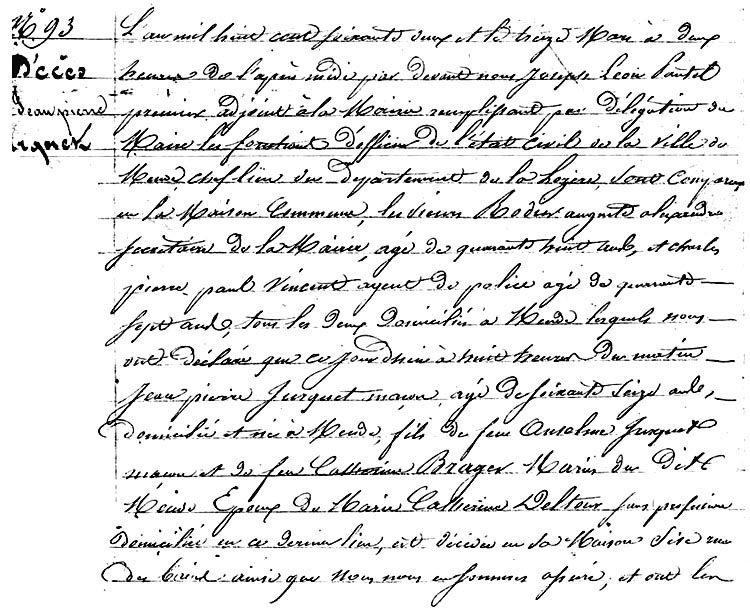 N° 93
Décès
Jean pierre
L'an mil huit cent soixante deux et le treize Mars à deux
heures de l'après midi par devant nous Joseph Léon Pantel
premier adjoint à la Mairie remplissant par délégation du
Maire les fonctions d'officier de l'état civil de la ville de
Mende chef lieu du département de la Lozère, sont comparus
en la Maison Commune, les sieurs Rodier auguste alexandre
secrétaire de la Mairie, agé de quarante huit ans, et charles
pierre paul Vincent agent de police agé de quarante
sept ans, tous les deux domiciliés à Mende lesquels nous
ont déclaré que ce jourdhui à huit heures du matin
Jean pierre Jurquet maçon, agé de soixante seize ans,
domicilié et né à Mende, fils de feu Anselme Jurquet
maçon et de feu Catherine Brager Mariés du dit
Mende Epoux de Marie Catherine Deltour sans profession
domiciliée en ce dernier lieu, est décédé en sa Maison sise rue
ainsi que nous nous en sommes assuré, et ont les